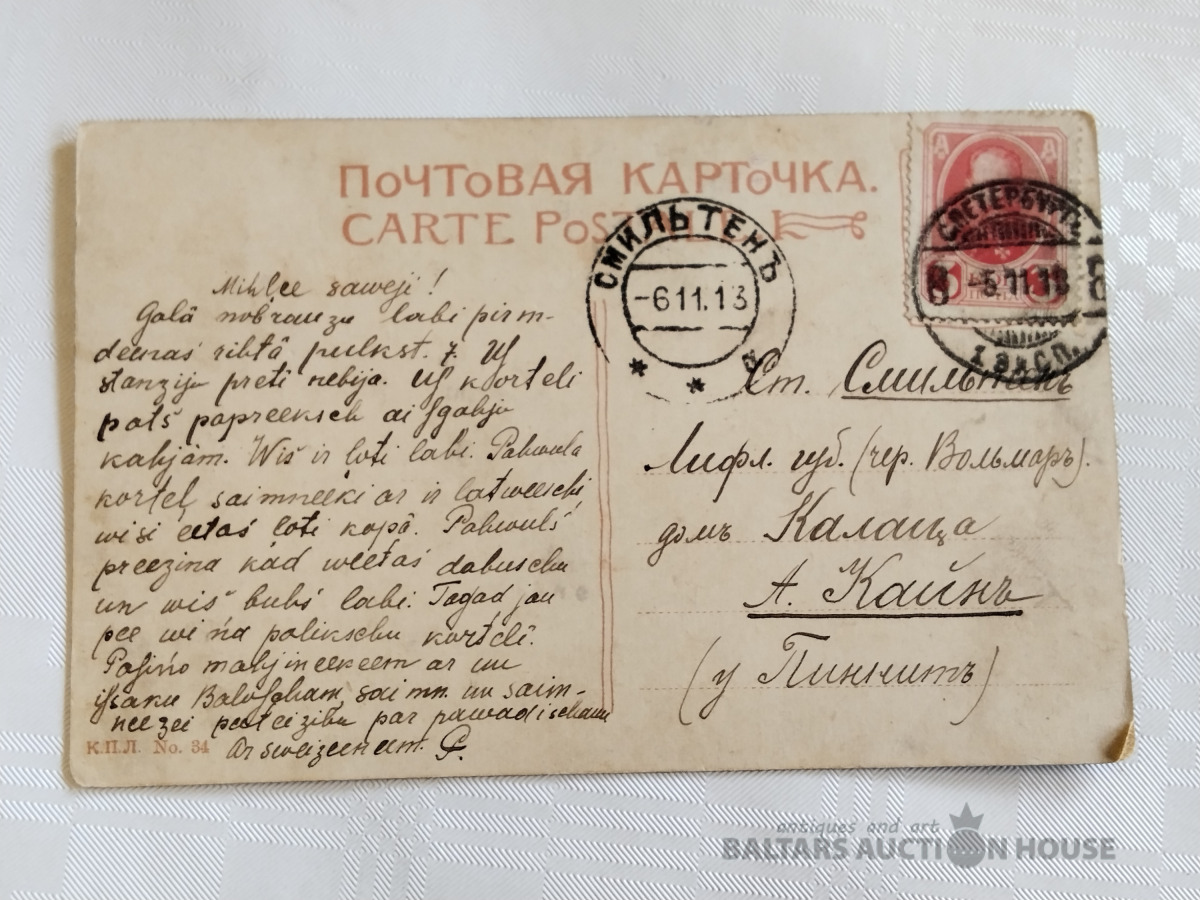 ПОЧТОВАЯ КАРТОЧКА.
CARTE POSTALE
СМИЛЬТЕНЪ
-6 11. 13
С.ПЕТЕРБУРГЪ
8 -5.11.13 8
1 ЭКСП.
Mihlee saweji!
Galā nobrauzu labi pirm-
deenas rihtā pulkst. 7. Uf
stanziju preti nebija. Uf korteli
pats papreeksch aifgahju
kahjām. Wiss ir loti labi. Pahwula
kortel saimneeki ar ir latweeschi
wisi eetas loti kopā. Pahwuls
preezina kad weetas dabuschu
un wiss buhs labi. Tagad jau
pee wina palikschu kortelī.
Pasino mahjineekeem ar un
issaku saimn. un saim-
neezei pateizibu par pawadischanu
Ar sweizeenam.
К.П.Л. No. 34
Ст. Смильтенъ
Лифл. губ. (чер. Вольмаръ).
домъ Калаца
А. Кайнъ
(у Пиннитъ)
antiques and art
BALTARS AUCTION HOUSE